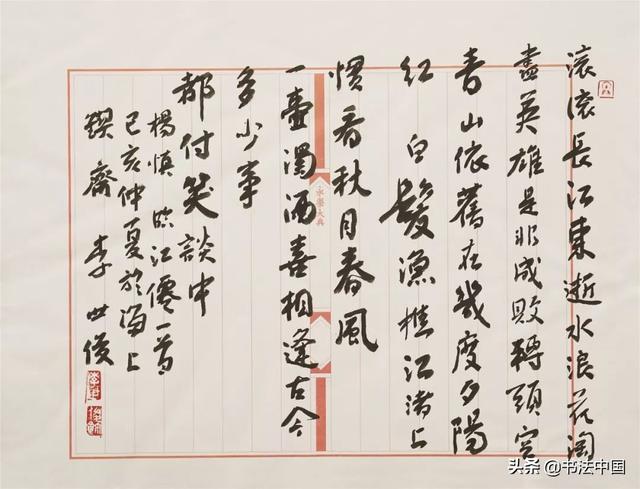 滚滚長江東逝水浪花淘
盡英雄是非成敗轉頭空
青山依舊在幾度夕陽
紅 白髮漁樵江渚上
慣看秋月春風
一壺濁酒喜相逢古今
多少事
都付笑談中
楊慎臨江僊一首
己亥仲夏於海上
鍥齋 李世俊
永樂大典
头条 @书法中国